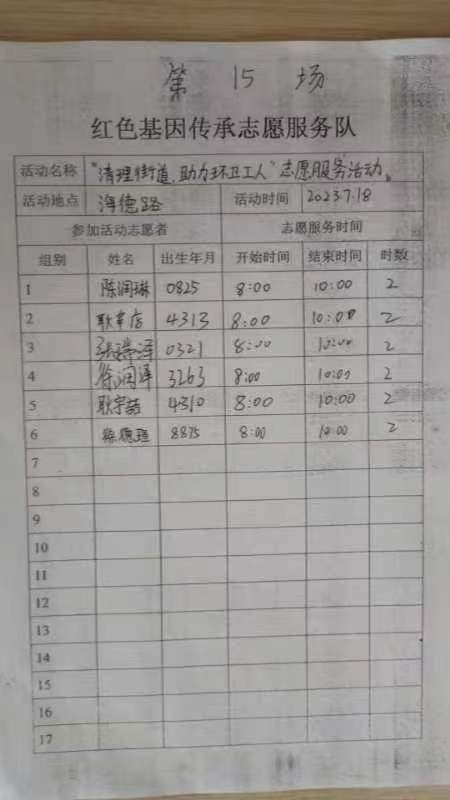 第 15 场
红色基因传承志愿服务队
活动名称 "清理街道,助力环卫工人"志愿服务活动。
活动地点 海德路 活动时间 2023.7.18
参加活动志愿者 志愿服务时间
组别 姓名 出生年月 开始时间 结束时间 时数
1 陈润琳 0825 8:00 10:00 2
2 4313 8:00 10:00 2
3 0321 8:00 10:00 2
4 徐润泽 3263 8:00 10:00 2
5 耿宇喆 4310 8:00 10:00 2
6 8875 8:00 10:00 2
7
8
9
10
11
12
13
14
15
16
17